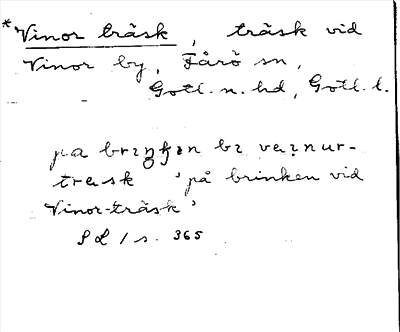 *Vinor träsk, träsk vid
Vinor by, Fårö sn,
Gotl. n. hd, Gotl. l.
pa brɪŋkɪn bɪ vaɪnur-
trask 'på brinken vid
Vinor-träsk'
SL 1 s. 365